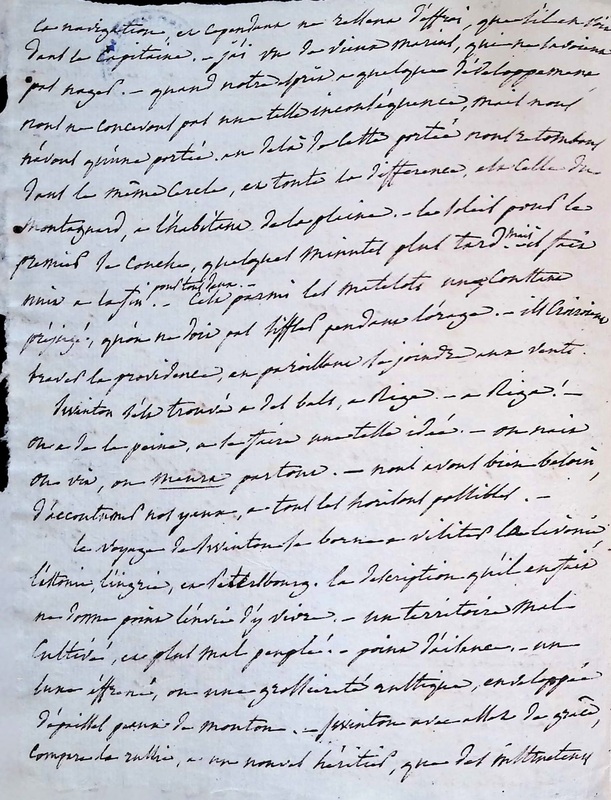 la navigation, et cependant ne rallena d'effroi, que s'il en étoit
dans le capitaine. – j'ai vu de vieux marins, qui ne savoient
pas nager. – quand notre esprit a quelque développement
nous ne concevons pas une telle inconséquence, mais nous
n'avons qu'une portée. au delà de cette portée nous retombons
dans le même cercle, et toute la différence, est celle du
montagnard, a l'habitant de la plaine. – le soleil pour le
premier se couche, quelques minutes plus tard. mais il fait
nuit a la fin pour tous deux. – C'est parmi les matelots un constant
préjugé, qu'on ne doit pas siffler pendant l'orage. – ils croiroient
braver la providence, en paroissant se joindre aux vents.
Swinton s'est trouvé a des bals, a Riga. – a Riga! –
on a de la peine, a se faire une telle idée. – on nait
on vit, on meurt partout. – nous avons bien besoin,
d'accoutumer nos yeux, a tous les horisons possibles. –
le voyage de Swinton se borne a visiter la livonie,
l'estonie, l'ingrie, et Petersbourg. la description qu'il en fait
ne donne point l'envie d'y vivre. – un territoire mal
cultivé, et plus mal peuplé. – point d'aisance. – un
luxe effréné, ou une grossiereté rustique, enveloppée
d'épaisses peaux de mouton. – Swinton avec assez de grâce,
compare la russie, a un nouvel héritier, que des instituteurs